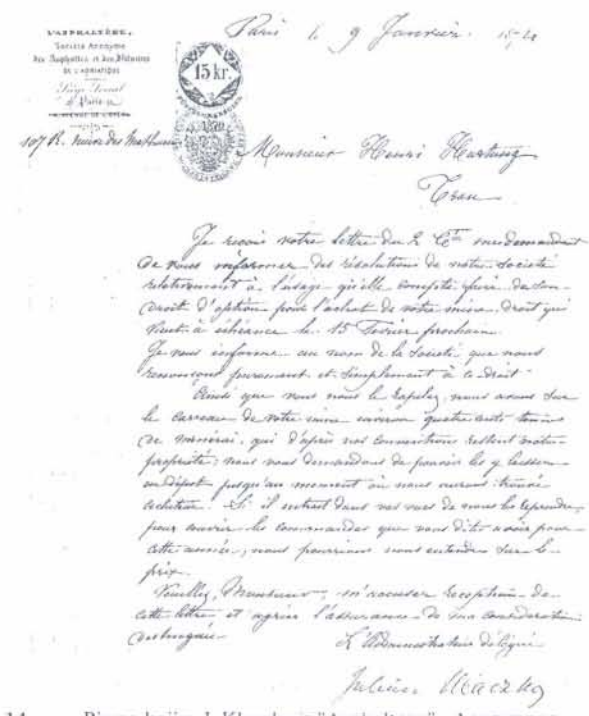 L'ASPHALTÈNE.
Société Anonyme
des Asphaltes et des Bitumes
DE L'ADRIATIQUE
Siège Social
à Paris
AVENUE DE L'OPÉRA
Paris le 9 Janvier
15 kr.
107 R. Neuve des Mathurins
Monsieur Henri Hartung
Trau
Je reçois votre lettre du 2 Ct me demandant
de vous informer des résolutions de notre Société
relativement à l'usage qu'elle compte faire de son
droit d'option pour l'achat de votre mine, droit qui
vient à échéance le 15 Février prochain.
Je vous informe au nom de la Société que nous
renonçons purement et simplement à ce droit.
Ainsi que vous nous le rapelez, nous avons sur
le carreau de votre mine environ quatre cents tonnes
de minerai, qui d'après nos conventions restent notre
propriété; nous vous demandons de pouvoir les y laisser
en dépôt jusqu'au moment où nous aurons trouvé
acheteur. Si il entrait dans vos vues de nous les reprendre,
pour couvrir les commandes que vous dites avoir pour
cette année, nous pourrions nous entendre sur le
prix.
Veuillez, Monsieur, m'accuser réception de
cette lettre et agréer l'assurance de ma considération
distinguée.
L'Administrateur délégué
Julien